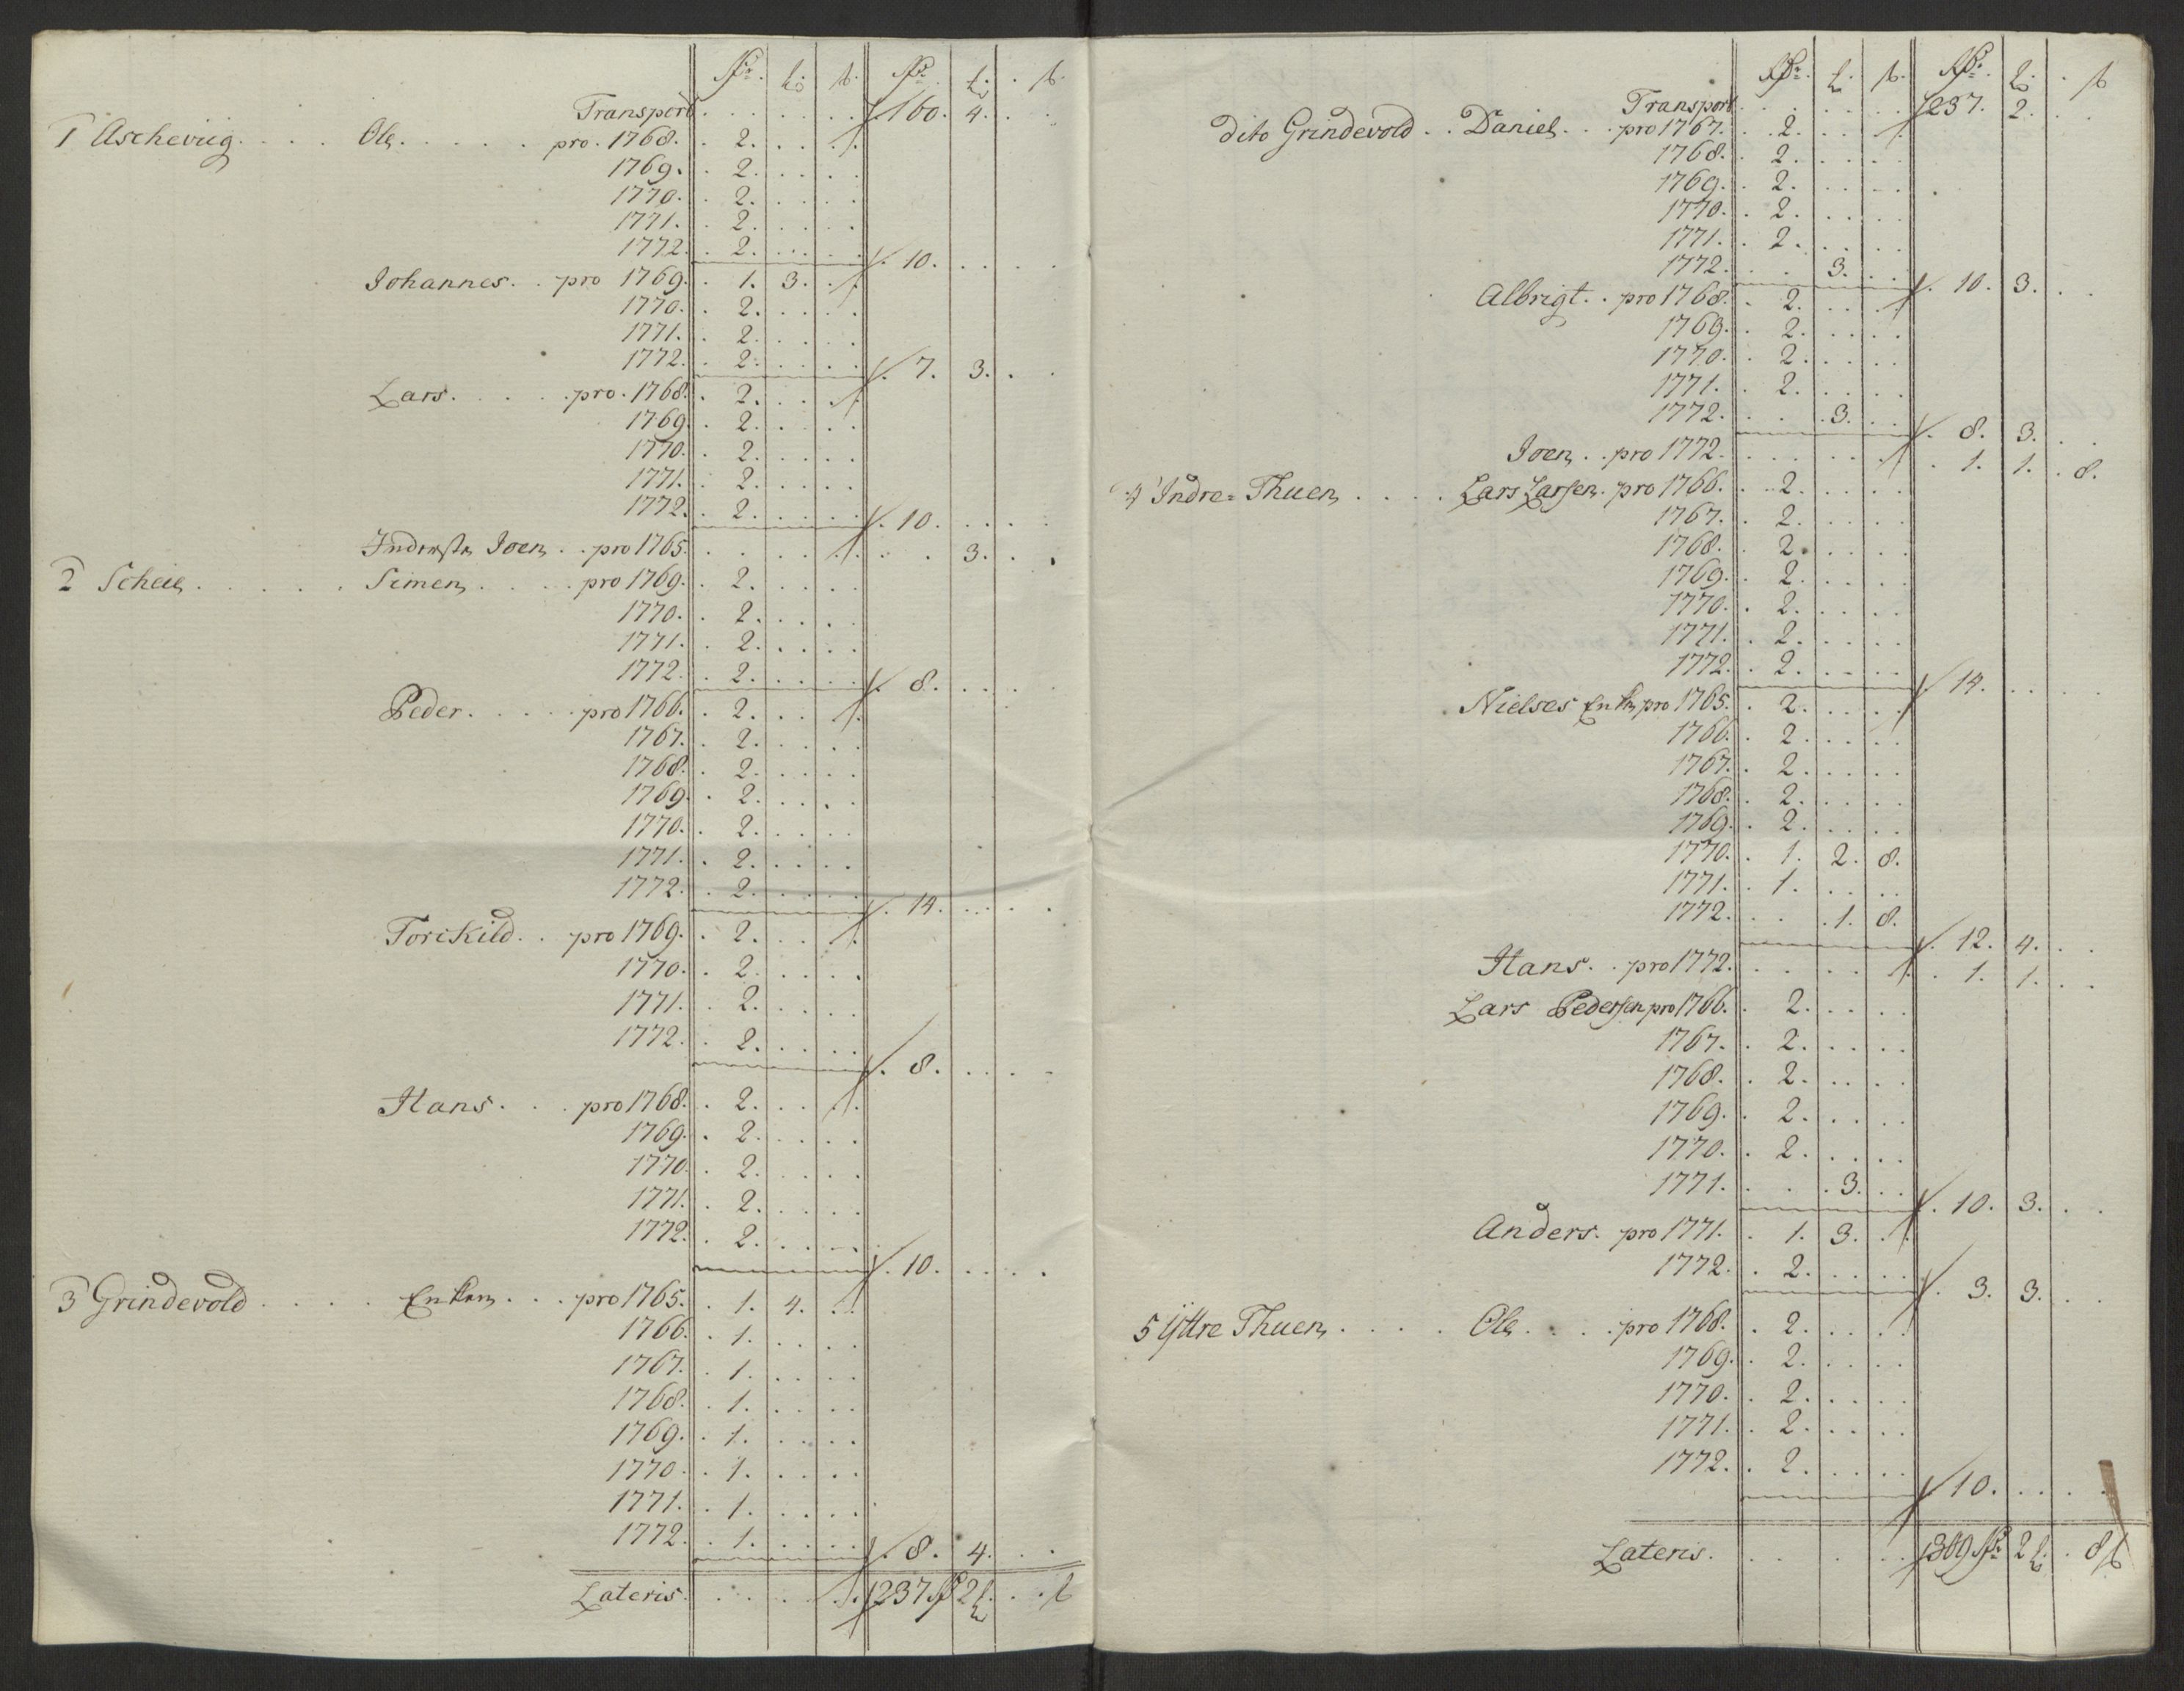 Rdr. . ℔. ß. Rdr. ℔. . ß.
Transport . . . . . . 160. 4. . .
1 Ascheviig. . . . Ole . . . . . pro. 1768. . 2. . . .
1769. . 2. . . . .
1770. . 2. . . . .
1771. . 2. . . . .
1772. . 2. . . . . 10. . . . .
Johannes. . pro 1769. . 1. 3. . .
1770. . 2. . . . .
1771. . 2. . . . .
1772. . 2. . . . . 7. 3. . .
Lars. . . . . pro. 1768. . 2. . . .
1769. . 2. . . . .
1770. . 2. . . . .
1771. . 2. . . . .
1772. . 2. . . . . 10. . . . .
Inderste Joen . . pro 1765. . . . . . . . 3. . .
2 Scheie . . . . . Simen . . . . pro 1769. . 2. . . . .
1770. . 2. . . . .
1771. . 2. . . . .
1772. . 2. . . . . 8. . . . .
Peder. . . . . pro 1766. . 2. . . .
1767. . 2. . . . .
1768. . 2. . . . .
1769. . 2. . . . .
1770. . 2. . . . .
1771. . 2. . . . .
1772. . 2. . . . . 14. . . . .
Torskild. . pro 1769. . 2. . . .
1770. . 2. . . . .
1771. . 2. . . . .
1772. . 2. . . . . 8. . . . .
Hans. . . pro 1768. . 2. . . .
1769. . 2. . . . .
1770. . 2. . . . .
1771. . 2. . . . .
1772. . 2. . . . . 10. . . . .
3 Grindevold . . . . Enken . . . pro 1765. . 1. 4. . .
1766. . 1. . . . .
1767. . 1. . . . .
1768. . 1. . . . .
1769. . 1. . . . .
1770. . 1. . . . .
1771. . 1. . . . .
1772. . 1. . . . . 8. 4. . .
Lateris. . . . . . . 237 Rdr 2 ℔. . . ß
Rdr. ℔. ß. Rdr. ℔. . ß
Transport . . . . . . 237. 2. . .
dito Grindevold . . Daniel. . . pro 1767. . 2. . . .
1768. . 2. . . . .
1769. . 2. . . . .
1770. . 2. . . . .
1771. . 2. . . . .
1772. . . 3. . . 10. 3. . .
Albrigt. . pro 1768. . 2. . . .
1769. . 2. . . . .
1770. . 2. . . . .
1771. . 2. . . . .
1772. . . 3. . . 8. 3. . .
Joen . . pro 1772. . . . . . . 1. 1. . 8.
4 Indre= Thuen . . . . Lars Larsen. pro 1766. . 2. . . . .
1767. . 2. . . . .
1768. . 2. . . . .
1769. . 2. . . . .
1770. . 2. . . . .
1771. . 2. . . . .
1772. . 2. . . . . 14. . . . .
Nielses Enke pro 1765. . 2. . . . .
1766. . 2. . . . .
1767. . 2. . . . .
1768. . 2. . . . .
1769. . 2. . . . .
1770. . 1. 2. 8.
1771. . 1. . . . .
1772. . . 1. 8. 12. 4. . .
Hans. . pro 1772. . . . . . . 1. 1. . .
Lars Pedersen pro 1766. . 2. . . . .
1767. . 2. . . . .
1768. . 2. . . . .
1769. . 2. . . . .
1770. . 2. . . . .
1771. . . 3. . . 10. 3. . .
Anders. pro 1771. . 1. 3. . .
1772. . 2. . . . . 3. 3. . .
5 Yttre Thuen . . . . Ole . . . . pro 1768. . 2. . . . .
1769. . 2. . . . .
1770. . 2. . . . .
1771. . 2. . . . .
1772. . 2. . . . . 10. . . . .
Lateris. . . . . . 309 Rdr 2 ℔. . 8 ß